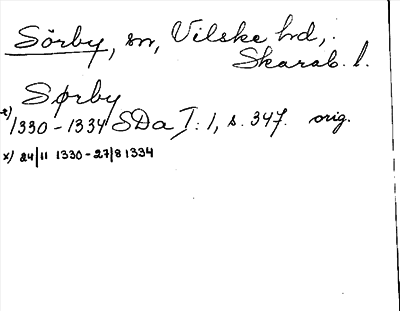 Sörby, sn, Vilske hd,
Skarab. l.
Sørby
x) 1330-1334 SDa I: 1, s. 347. orig.
x) 24/11 1330-27/8 1334